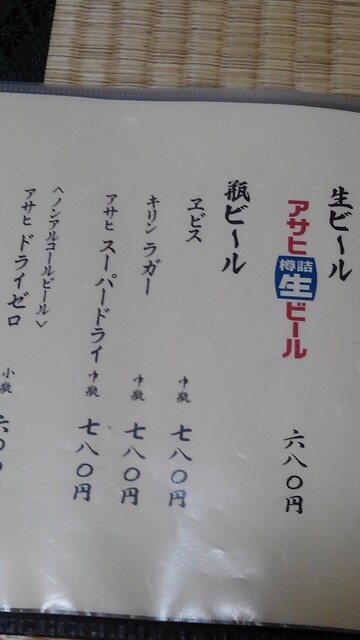 生ビール
アサヒ樽詰生ビール 六八〇円
瓶ビール
ヱビス 中瓶 七八〇円
キリン ラガー 中瓶 七八〇円
アサヒ スーパードライ 中瓶 七八〇円
〈ノンアルコールビール〉
アサヒ ドライゼロ 小瓶